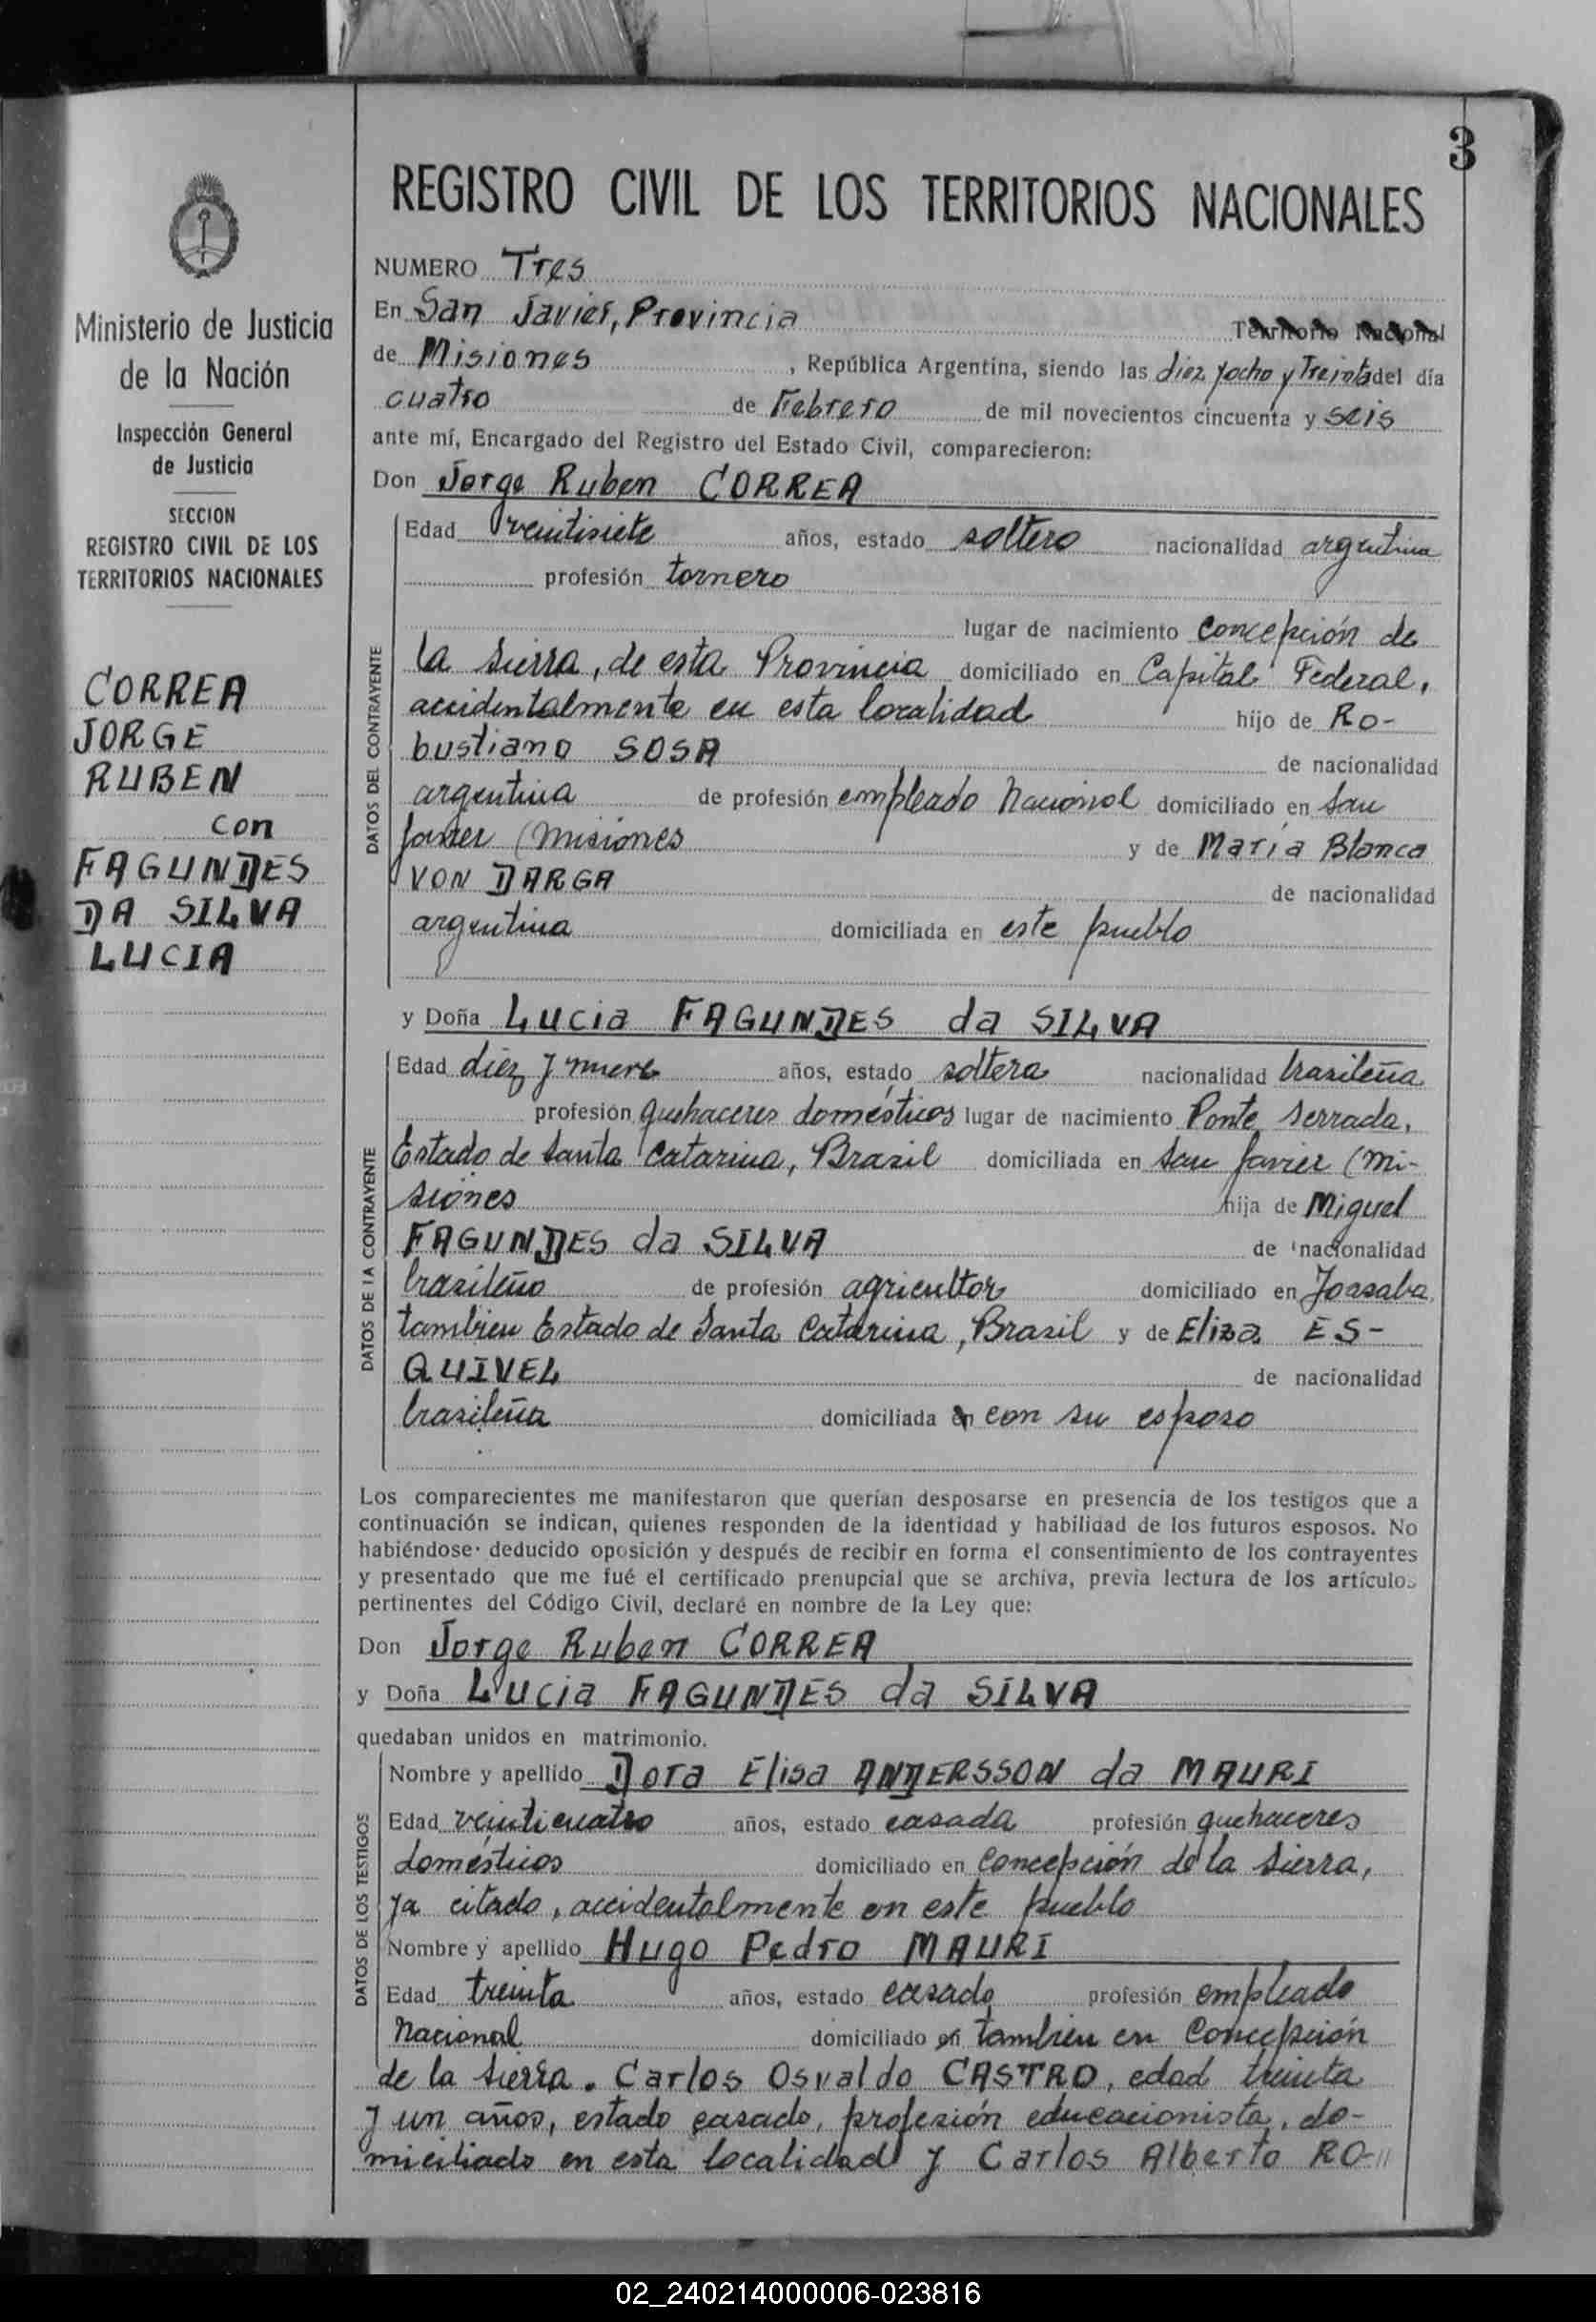 3
REGISTRO CIVIL DE LOS TERRITORIOS NACIONALES
Ministerio de Justicia
de la Nación
Inspección General
de Justicia
SECCION
REGISTRO CIVIL DE LOS
TERRITORIOS NACIONALES
CORREA
JORGE
RUBEN
con
FAGUNDES
DA SILVA
LUCIA
NUMERO Tres
En San Javier, Provincia Territorio Nacional
de Misiones, República Argentina, siendo las diez y ocho y Treinta del día
cuatro de Febrero de mil novecientos cincuenta y seis
ante mí, Encargado del Registro del Estado Civil, comparecieron:
Don Jorge Ruben CORREA
DATOS DEL CONTRAYENTE
Edad veintisiete años, estado soltero nacionalidad argentina
profesión tornero
lugar de nacimiento Concepción de
la Sierra, de esta Provincia domiciliado en Capital Federal,
accidentalmente en esta localidad hijo de Ro-
bustiano SOSA de nacionalidad
argentina de profesión empleado Nacional domiciliado en San
Javier (Misiones y de María Blanca
VON DARGA de nacionalidad
argentina domiciliada en este pueblo
y Doña Lucia FAGUNDES da SILVA
DATOS DE LA CONTRAYENTE
Edad diez y nueve años, estado soltera nacionalidad brasileña
profesión quehaceres domésticos lugar de nacimiento Ponte Serrada,
Estado de Santa Catarina, Brasil domiciliada en San Javier (Mi-
siones hija de Miguel
FAGUNDES da SILVA de nacionalidad
brasileño de profesión agricultor domiciliado en Joasaba,
tambien Estado de Santa Catarina, Brasil y de Eliza ES-
QUIVEL de nacionalidad
brasileña domiciliada en con su esposo
Los comparecientes me manifestaron que querían desposarse en presencia de los testigos que a
continuación se indican, quienes responden de la identidad y habilidad de los futuros esposos. No
habiéndose deducido oposición y después de recibir en forma el consentimiento de los contrayentes
y presentado que me fué el certificado prenupcial que se archiva, previa lectura de los artículos
pertinentes del Código Civil, declaré en nombre de la Ley que:
Don Jorge Ruben CORREA
y Doña Lucia FAGUNDES da SILVA
quedaban unidos en matrimonio.
DATOS DE LOS TESTIGOS
Nombre y apellido Dora Elisa ANDERSSON da MAURI
Edad veinticuatro años, estado casada profesión quehaceres
domésticos domiciliado en Concepción de la Sierra,
ya citado, accidentalmente en este pueblo
Nombre y apellido Hugo Pedro MAURI
Edad treinta años, estado casado profesión empleado
Nacional domiciliado en tambien en Concepción
de la Sierra. Carlos Osvaldo CASTRO, edad treinta
y un años, estado casado, profesión educacionista, do-
miciliado en esta localidad y Carlos Alberto RO-//
02_240214000006-023816